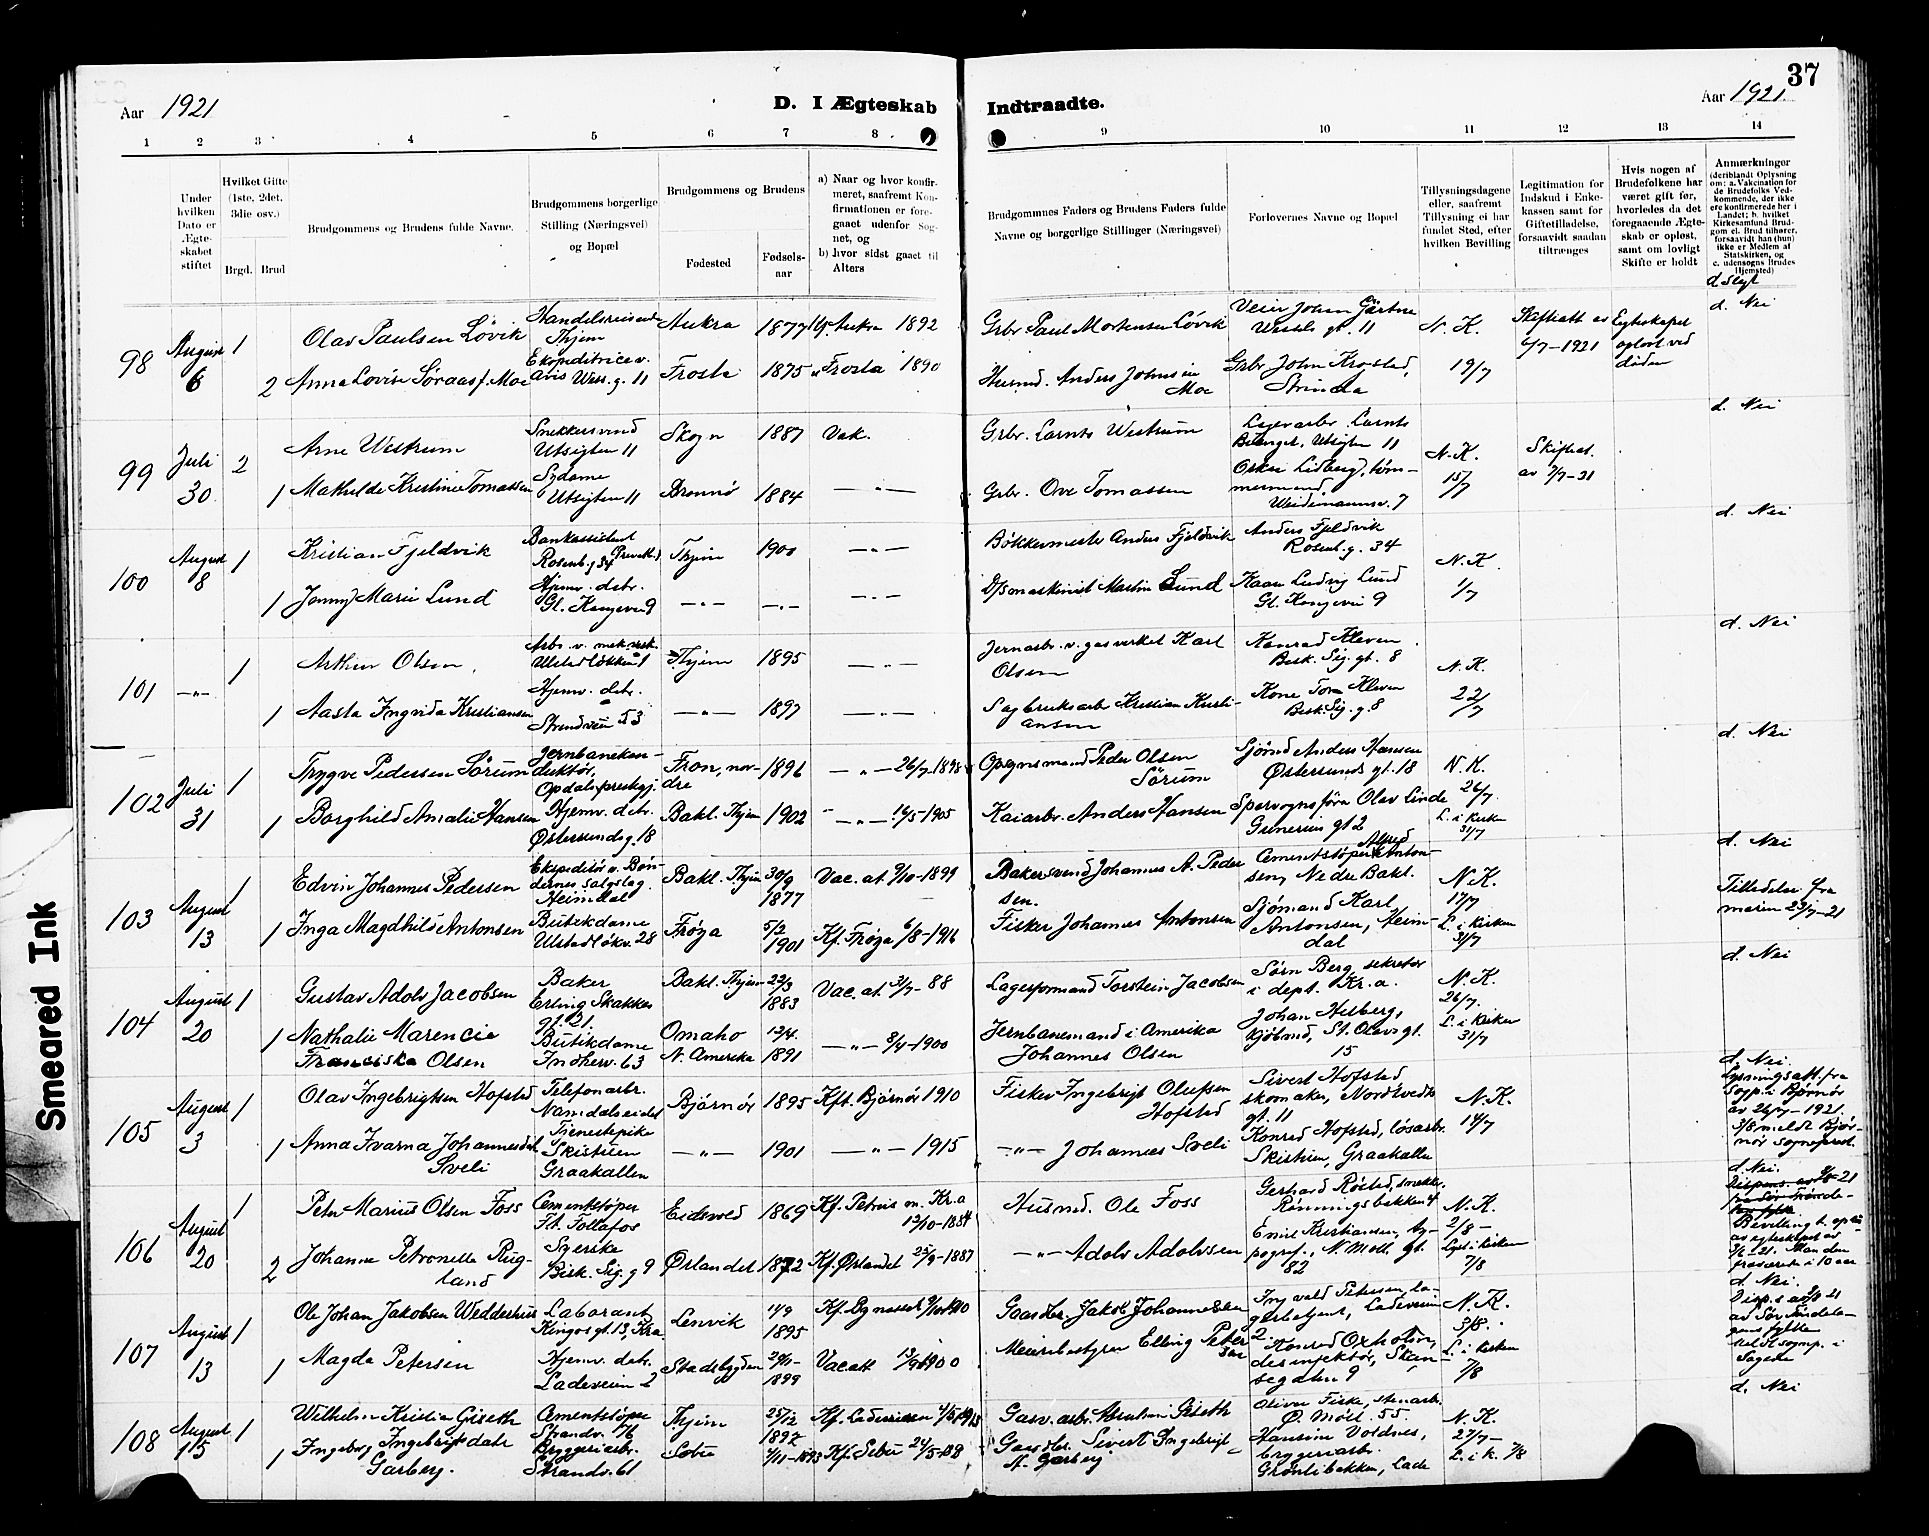 37
Aar 1921
D. I Ægteskab
Indtraadte.
Aar 1921.
1 2 3 4 5 6 7 8 9 10 11 12 13 14
Under hvilken Dato er Ægteskabet stiftet
Hvilket Gifte (1ste, 2det, 3die osv.)
Brgd. Brud
Brudgommens og Brudens fulde Navne.
Brudgommens borgerlige Stilling (Næringsvei) og Bopæl
Brudgommens og Brudens
Fødested
Fødselsaar
a) Naar og hvor konfirmeret, saafremt Konfirmationen er foregaaet udenfor Sognet, og
b) hvor sidst gaaet til Alters
Brudgommens Faders og Brudens Faders fulde Navne og borgerlige Stillinger (Næringsvei)
Forlovernes Navne og Bopæl
Tillysningsdagene eller, saafremt Tillysning ei har fundet Sted, efter hvilken Bevilling
Legitimation for Indskud i Enkekassen samt for Giftetilladelse, forsaavidt saadan tiltrænges
Hvis nogen af Brudefolkene har været gift før, hvorledes da det foregaaende Ægteskab er opløst, samt om lovligt Skifte er holdt
Anmærkninger (deriblandt Oplysning om: a. Vakcination for de Brudefolks Vedkommende, der ikke ere konfirmerede her i Landet; b. hvilket Kirkesamfund Brudgom el. Brud tilhører, forsaavidt han (hun) ikke er Medlem af Statskirken, og c. udensogns Brudes Hjemsted)
d. Slegt
98 August 6 1 Olav Paulsen Løvik Handelsreisende Thjem Aukra 1877 Kf. Aukra 1892 Grbr. Paul Mortensen Løvik Veier John Gärtner Wessels gt. 11 N. K. 19/7 Skifteatt av 6/7-1921 Egteskapet opløst ved døden d. Nei
2 Anna Lovise Søraas f. Moe Ekspeditrice v. avis Wess. g. 11 Frosta 1875 " Frosta 1890 Husmd. Anders Johnsen Moe Grbr. John Krogstad, Strinda
99 Juli 30 2 Arne Westrum Snekkersvend Utsigten 11 Skogn 1887 Vak. Grbr. Lornts Westrum Lagerarbr. Lornts Utsigten 11 N. K. 15/7 Skifteat. av 7/7-21 d. Nei
1 Mathilde Kristine Tomassen Sydame Utsigten 11 Brønnø 1884 —"— Grbr. Ove Tomassen Oskar Lidberg, tømmermand, Weidemannsv. 7
100 August 8 1 Kristian Fjeldvik Bankassistent Rosenb. g 34 Thjem 1900 —"— Bøkkermester Anders Fjeldvik Anders Fjeldvik Rosenb. g. 34 N. K. 1/7 d. Nei
1 Jenny Marie Lund Hjemv. datr. Gl. Kongevei 9 —"— —"— —"— D/Smaskinist Martin Lund Kaare Ludvig Lund Gl. Kongevei 9
101 —"— 1 Arthur Olsen Arbr. v. mek. verk. Ulstadløkken 1 Thjem 1895 —"— Jernarbr. v. gasverket Karl Olsen Konrad Kleven Bisk. Sig. gt. 8 N. K. 22/7 d. Nei
1 Aasta Ingrida Kristiansen Hjemv. datr. Strandveien 53 —"— 1897 —"— Sagbruksarb. Kristian Kristiansen Kone Tora Kleven Bisk. Sig. g. 8
102 Juli 31 1 Trygve Pedersen Sørum Jernbanekonduktør, Opdals prestgj. Fron, nordre 1896 —"— 26/7-1898 Opsynsmand Peder Olsen Sørum Sjømd Anders Hansen Østersunds gt. 18 N. K. 26/7 L. i Kirken 31/7 d. Nei
1 Borghild Amalie Hansen Hjemv. datr. Østersundsg. 18 Bakl. Thjem 1902 —"— 16/5-1905 Kaiarbr. Anders Hansen Sporvognsfører Olav Linde Gunerius gt 2
103 August 13 1 Edvin Johannes Pedersen Ekspeditør v. Bøndernes salgslag. Heimdal Bakl. Thjem 30/9 1877 Vac. at. 9/10-1899 Bakersvend Johannes A. Pedersen. Cementstøper Alfred Antonsen, Nedre Bakl. N. K. 17/7 L. i Kirken 31/7 d. Nei Tilladelse fra marin 23/7-21
1 Inga Magdhild Antonsen Butikdame Ulstadløkv. 28 Frøya 5/2 1901 Kf. Frøya 6/8-1916 Fisker Johannes Antonsen Sjømand Karl Antonsen, Heimdal
104 August 20 1 Gustav Adolv Jacobsen Baker Erling Skakkes gt. 21. Bakl. Thjem 22/3 1883 Vac. at. 3/7-88 Lagerformand Torstein Jacobsen Sørn Berg, sekretær i dept. Kr.a. N. K. 26/7. L. i Kirken 31/7 d. Nei
1 Nathalie Marencie Franciska Olsen Butikdame Indherv. 63 Omaho N. Amerika 12/4. 1891 —"— 8/4-1900 Jernbanemand i Amerika Johannes Olsen Johan Helberg, kjøbmd, St. Olavs gt. 15
105 August 3 1 Olav Ingebrigtsen Hofstad Telefonarbr. Namdalseidet Bjørnør 1895 Kft. Bjørnør 1910 Fisker Ingebrigt Olufsen Hofstad Sivert Hofstad skomaker, Nordtvedts gt. 11 N. K. 14/7 d. Nei. Lysningsatt. fra Sogp. i Bjørnør av 26/7-1921. 3/8 meldt Bjørnør sogneprest.
1 Anna Ivarna Johannesdat. Sveli Tjenestepike Skistuen Graakallen —"— 1901 —"— 1915 —"— Johannes Sveli Konrad Hofstad, løsarbr. Skistuen, Graakallen
106 August 20 1 Peter Marius Olsen Foss Cementstøper Ft. Follafos Eidsvold 1869 Kf. Petrus m. Kr.a 12/10-1884 Husmd. Ole Foss Gerhard Røstad, snekker. Rønningsbakken 4 N. K. 2/8- Lyst i Kirken 7/8 d. Nei.
2 Johanne Petronelle Rugland Syerske Bisk. Sig. g 9 Ørlandet 1872 Kf. Ørlandet 25/9-1887 —"— Adolv Adolvsen Emil Kristiansen, typograf, N. Møll. gt. 82
107 August 13 1 Ole Johan Jakobsen Wedderhus Laborant Kingos gt. 13, Kr.a Lenvik 14/9 1895 Gaardbr. Jakob Johannessen Ingvald Petersen, lagerbetjent, Ladeveien 2. N. K. 3/8. L. i Kirken 7/8 d. Nei.
1 Magda Petersen Hjemv. datr. Ladeveien 2 Stadsbygden 29/11- 1899 Vac. att 13/9-1900 Meieribestyrer Elling Petersen Konrad Oxholm, desinfektør, Skansegaten 9
108 August 15 1 Wilhelm Kristian Giseth Cementstøper Strandv. 76 Thjem 25/12 1892 Gasv. arbr. Abraham Giseth Oliver Fiske, stenarbr. Ø. Møll. 55. N. K. 27/7- L. i K. 7/8 d. Nei
1 Ingeborg Ingebrigtsdatr Garberg. Bryggeriarbr. Strandv. 61 Selbu 7/11-1893 Kf. Selbu 24/5-08 Gaardbr. Sivert Ingebrigt- Garberg Hansine Voldnes, bryggeriarbr. Grønlibakken, Lade
Smeared Ink